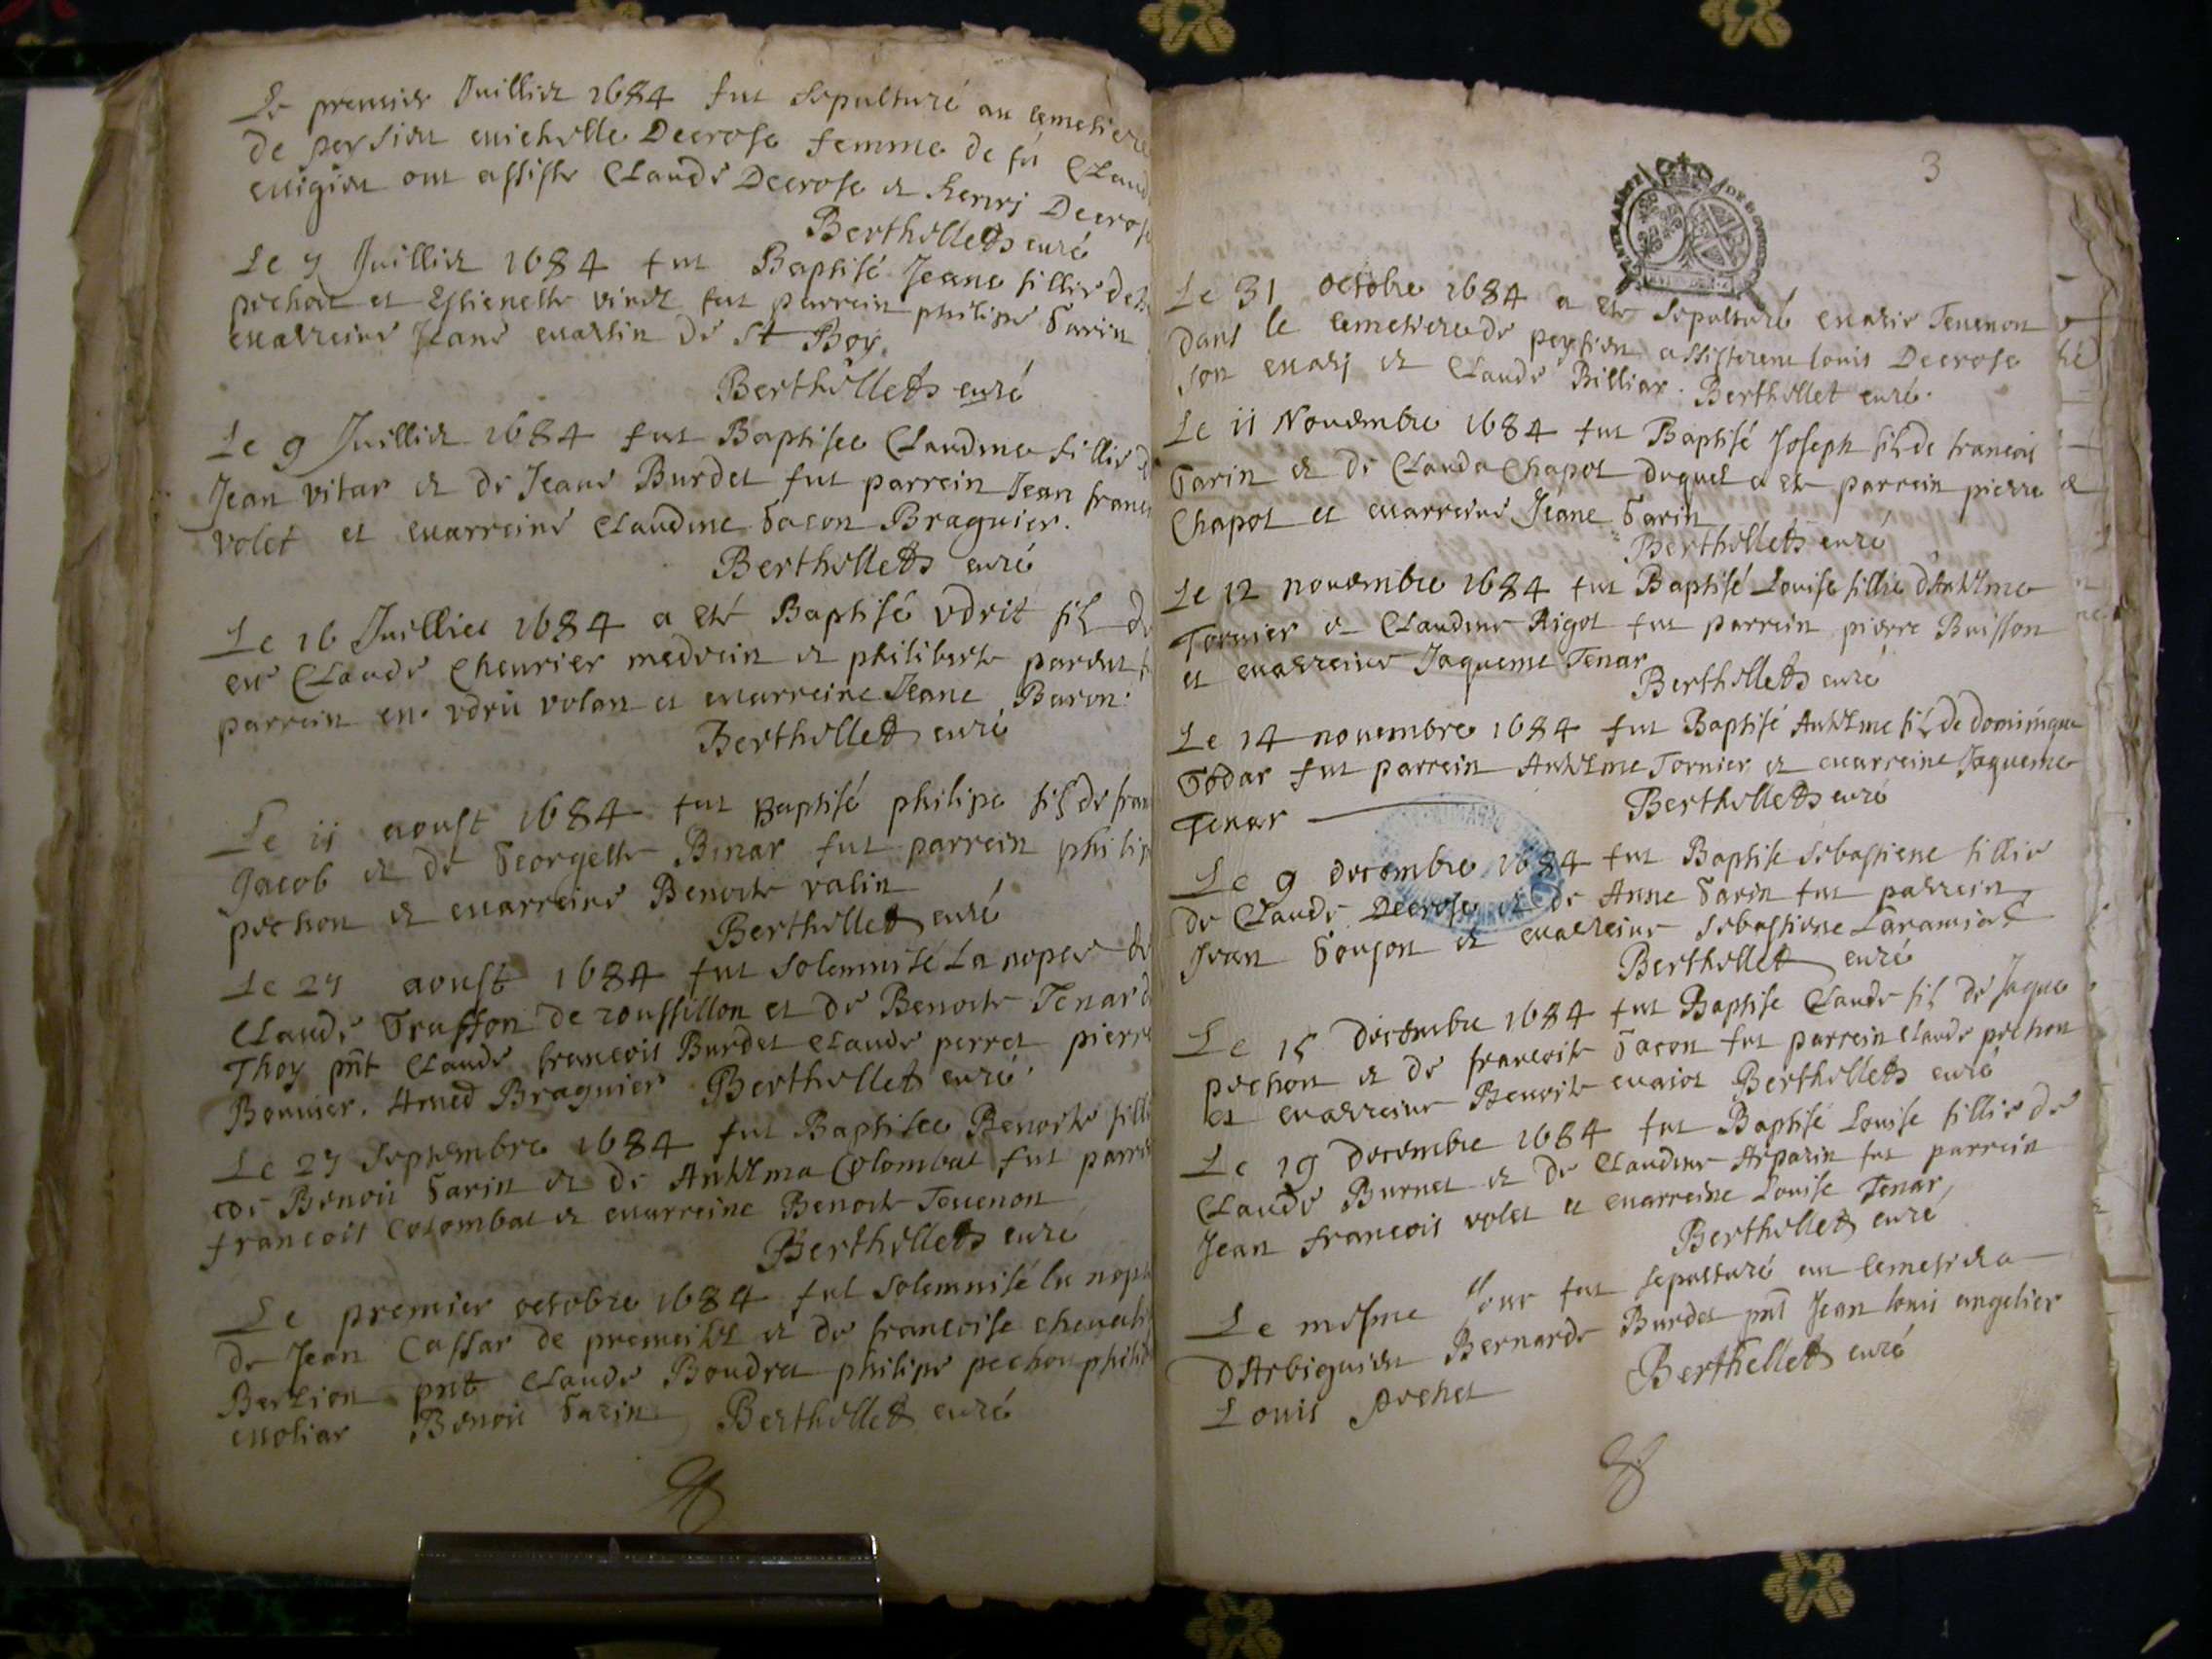 Le premier Juillier 1684 fut sepulturé au cemetiere
de peysieu michelle Decrose femme de fu Claud
migieu ont assiste Claude Decrose et henri Decrose
Berthellet curé
Le 7 Juillier 1684 fut Baptisé Jeane fillie de
pochat et Estienette fut parrein philipe Garin
marreine Jeane martin de St Boy.
Berthellet curé
Le 9 Juillier 1684 fut Baptisee Claudine fillie d
Jean vitar et de Jeane Burdet fut parrein Jean franc
volet et marreine Claudine Gacon Braguier.
Berthellet curé
Le 16 Juillier 1684 a ete Baptisé vdrit fil de
mr Claude Cheurier medecin et philiberte
parrein mr vdru volan et marreine Jeane Baron.
Berthellet curé
Le ii aoust 1684 fut Baptisé philipe fil de fran
Jacob et de Georgette Binar fut parrein philip
pochon et marreine Benoite valin
Berthellet curé
Le 27 aoust 1684 fut solemnisé La nopce de
Claude Trusson de roussillon et de Benoite Tenar d
Thoy pnt Claude francois Burdet Claude perret pierre
Bonnier. Amed Braguier Berthellet curé.
Le 27 septembre 1684 fut Baptisee Benoite filli
de Benoit Garin et de Anthelma Colombat fut parre
francois Colombat et marreine Benoite Teuenon
Berthellet curé
Le premier octobre 1684 fut solemnisé la nop
de Jean Cassar de premeisel et de francoise cheuali
Bertion pnt Claude Boudret philipe pochon phili
moliar Benoit Garin Berthellet curé
3
Le 31 octobre 1684 a ete sepulturé marie Teuenon
dans le cemetiere de peysieu assisterent louis Decrose
son mari et Claude Billiar. Berthellet curé.
Le ii Nouembre 1684 fut Baptisé Joseph fil de francois
Garin et de Clauda Chapot duquel a ete parrein pierre
Chapot et marreine Jeane Garin
Berthellet curé
Le 12 nouembre 1684 fut Baptisé Louise fillie d'Anthelme
Tornier et Claudine Rigot fut parrein pierre Buisson
et marreine Jaqueme Tenar
Berthellet curé
Le 14 nouembre 1684 fut Baptisé Anthelme fil de dominique
Godar fut parrein Anthelme Tornier et marreine Jaqueme
Tenar
Berthellet curé
Le 9 decembre 1684 fut Baptise sebastiene fillie
de Claude Decrose et de Anne Garin fut parrein
Jean Goujon et marreine sebastiene
Berthellet curé
Le 15 decembre 1684 fut Baptise Claude fil de Jaque
pochon et de francoise Gacon fut parrein Claude pochon
et marreine Benoite maiot Berthellet curé
Le 19 decembre 1684 fut Baptisé Louise fillie de
Claude Burnet et de Claudine Arparin fut parrein
Jean francois volet et marreine Louise Tenar
Berthellet curé
Le mesme Jour fut sepulturé au cemetiere
d'Arbignieu Bernarde Burdet pnt Jean louis angelier
Louis pochet Berthellet curé